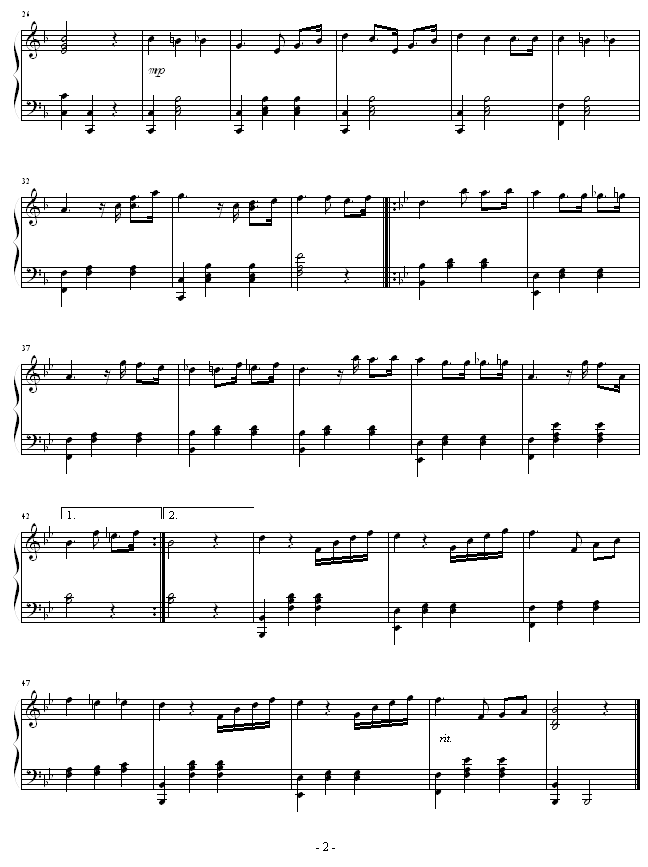 26
mp
32
37
42
1. 2.
47
rit.
- 2 -